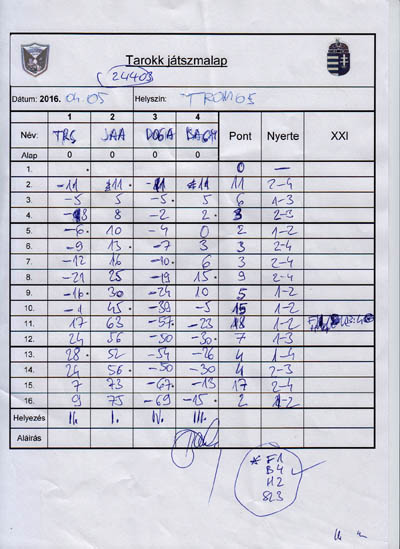 Tarokk játszmalap
24403
Dátum: 2016. 04.05 Helyszín: TROMOS
1 2 3 4
Név: TRS JAA DOGA BAGM Pont Nyerte XXI
Alap 0 0 0 0
1. 0 —
2. -11 11 -11 11 11 2-4
3. -5 5 -5 5 6 1-3
4. 8 -2 2 3 2-3
5. -6 10 -4 0 2 1-2
6. -9 13 -7 3 3 2-4
7. -12 16 -10 6 3 2-4
8. -21 25 -19 15 9 2-4
9. -16 30 -24 10 5 1-2
10. -1 45 -39 -5 15 1-2
11. 17 63 -57 -23 18 1-2
12. 24 56 -50 -30 7 1-3
13. 28 52 -54 -26 4 1-4
14. 24 56 -50 -30 4 2-3
15. 7 73 -67 -13 17 2-4
16. 9 75 -69 -15 2 1-2
Helyezés II. I. IV. III.
Aláírás
* F1
B4
H2
SL3